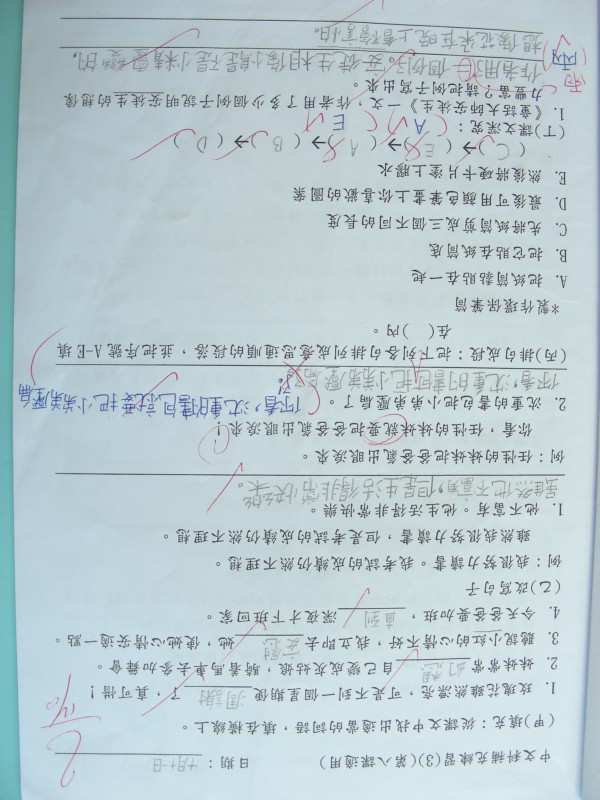 中文科補充練習(3)(第八課適用)　日期：十月十日
(甲) 填充：從課文中找出適當的詞語，填在橫線上。
1. 玫瑰花雖然漂亮，可是不到一個星期便 凋謝 了，真可惜！
2. 妹妹常常 幻想 自己變成灰姑娘，騎着馬車去參加舞會。
3. 聽說小紅的心情不好，我立即去 安慰 她，使她心情安適一點。
4. 今天爸爸要加班， 直到 深夜才下班回家。
(乙)改寫句子
例：我很努力讀書。我考試的成績仍然不理想。
雖然我很努力讀書，但是考試的成績仍然不理想。
1. 他不富有。他生活得非常快樂。
雖然他不富有，但是生活得非常快樂。
例：任性的妹妹把爸爸氣出眼淚來。
你看，任性的妹妹就要把爸爸氣出眼淚來！
2. 沈重的書包把小弟弟壓扁了。
你看，沈重的書包就要把小弟弟壓扁
了。
你看，沈重的書可把小弟弟壓
(丙)排句成段：把下列各句排列成意思通順的段落，並把序號 A-E 填
在(　)內。
*製作環保筆筒
A. 把紙筒黏貼在一起
B. 把它貼在紙筒底
C. 先將紙筒剪成三個不同的長度
D. 最後可用顏色筆畫上你喜歡的圖案
E. 然後將硬卡片塗上膠水
( C )→( E )→( A )→( B )→( D )
A E
(丁)課文深究：
1.《童話大師安徒生》一文，作者用了多少個例子說明安徒生的想像
力豐富？請把例子寫出來。
作者用了一個例子。安徒生想像小鳥是不是小精靈變的，
兩
想像花朵在晚上會不會害怕。